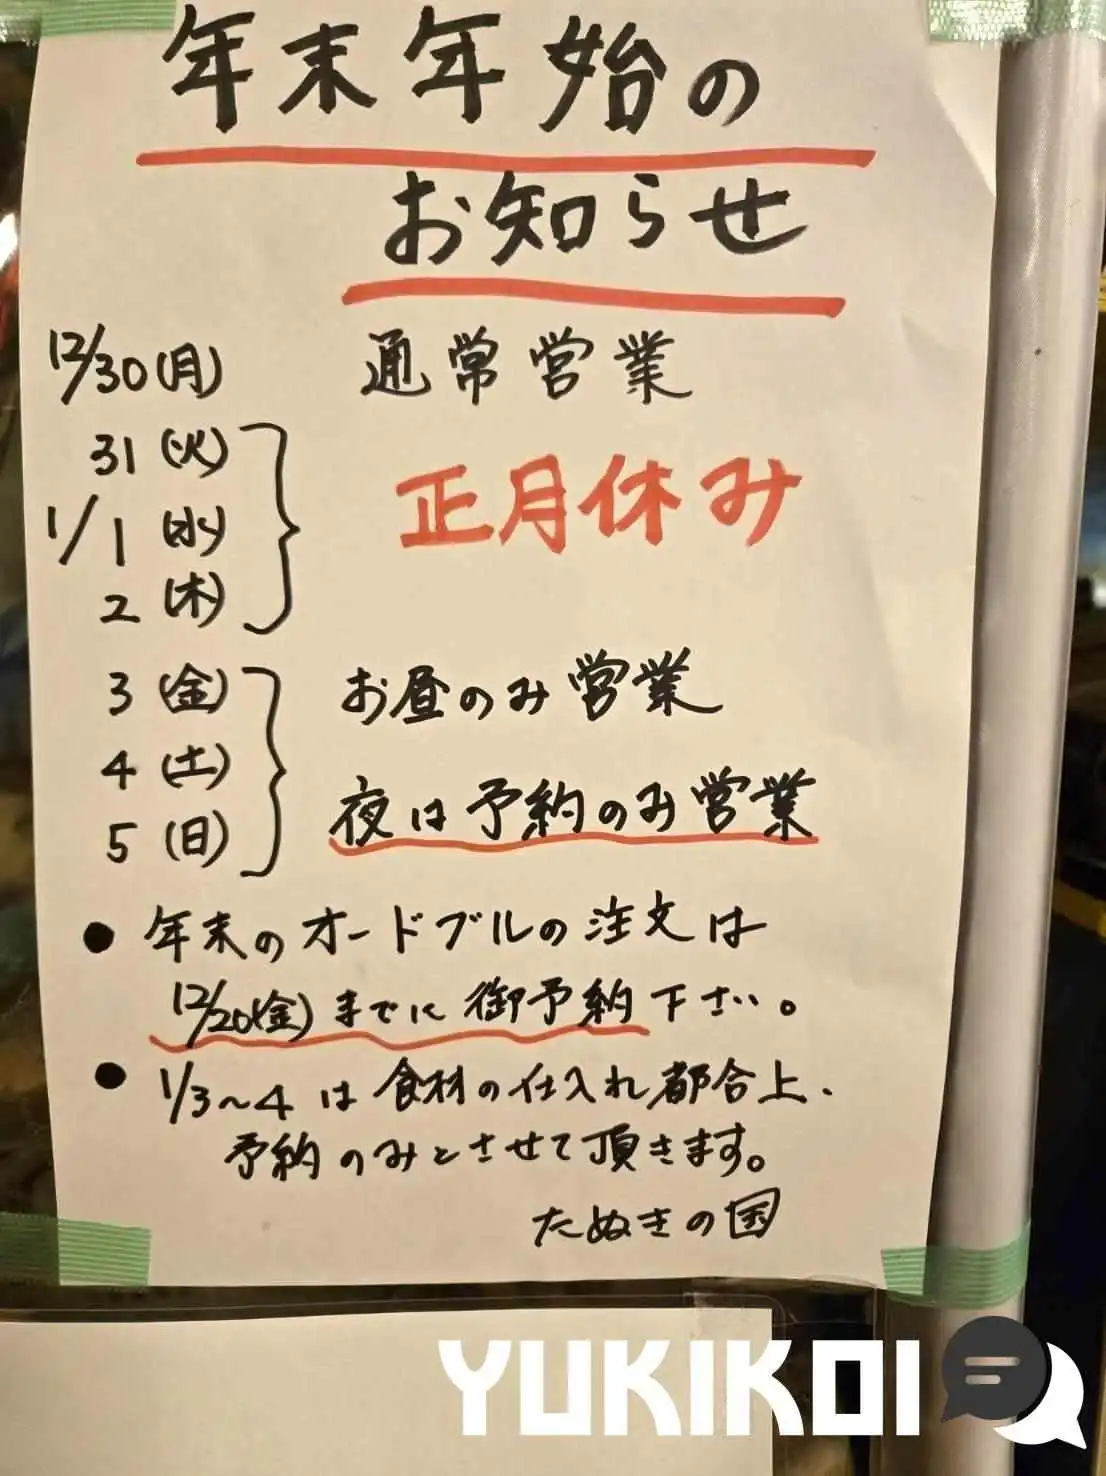 年末年始の
お知らせ
12/30(月) 通常営業
31(火)
1/1(水) 正月休み
2(木)
3(金) お昼のみ営業
4(土)
夜は予約のみ営業
5(日)
● 年末のオードブルの注文は
12/20(金)までに御予約下さい。
● 1/3~4は食材の仕入れ都合上、
予約のみとさせて頂きます。
たぬきの国
YUKIKOI